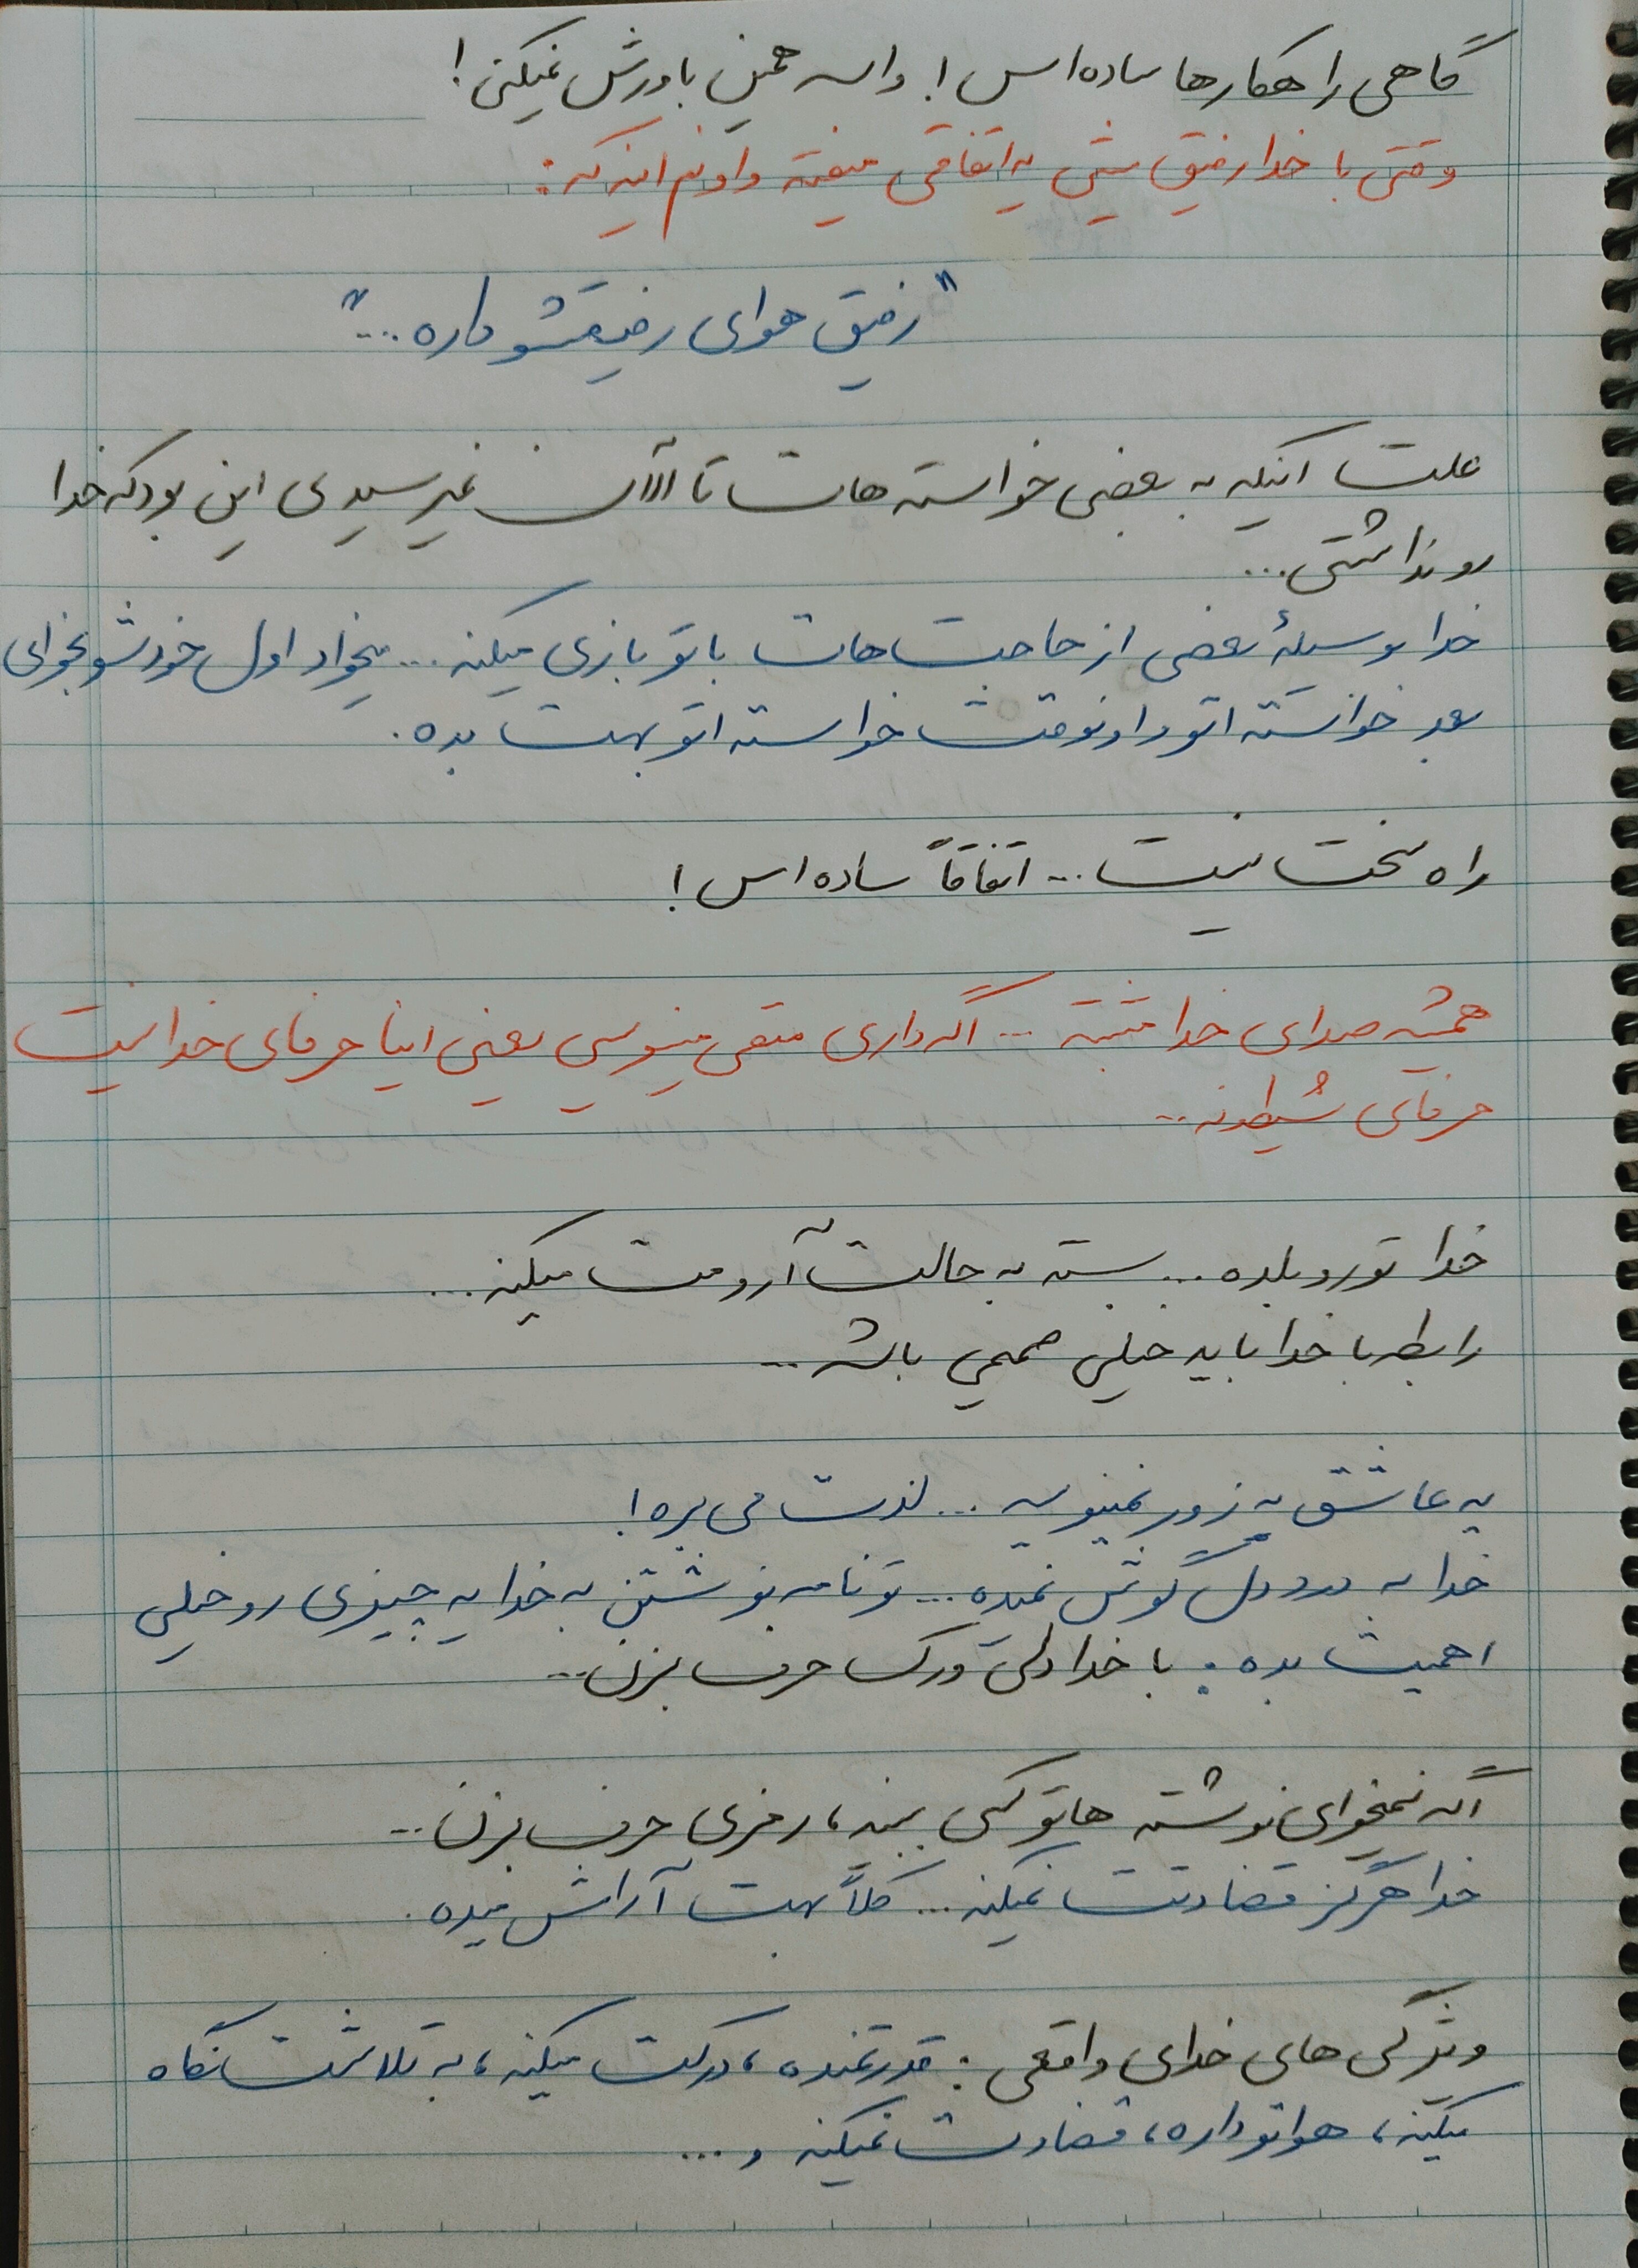 گاهی راهکارها ساده‌اس! واسه همین باورش نمیکنی!
وقتی با خدا رفیق بشی یه اتفاقی میفته و اونم اینه که:
"رفیق هوای رفیقشو داره..."
علت اینکه به بعضی خواسته هات تا الان نمیرسیدی این بود که خدا
رو نداشتی...
خدا بوسیلهٔ بعضی از حاجت هات با تو بازی میکنه... میخواد اول خودشو بخوای
بعد خواسته اتو و اونوقت خواسته اتو بهت بده.
راه سخت نیست... اتفاقاً ساده اس!
همیشه صدای خدا مثبته... اگه داری منفی مینویسی یعنی اینا حرفای خدا نیست
حرفای شیطونه...
خدا تو رو بلده... بسته به حالت آرومت میکنه...
رابطه با خدا باید خیلی صمیمی باشه...
یه عاشق به زور نمینویسه... لذت می بره!
خدا به درد دل گوش نمیده... تو نامه نوشتن به خدا یه چیزی رو خیلی
اهمیت بده: با خدا رک حرف بزن...
اگه نمیخوای نوشته هاتو کسی ببینه، رمزی حرف بزن...
خدا هرگز قضاوتت نمیکنه... کلاً بهت آرامش میده.
ویژگی های خدای واقعی: قدرتمنده، درکت میکنه، به تلاشت نگاه
میکنه، هواتو داره، قضاوتت نمیکنه و...